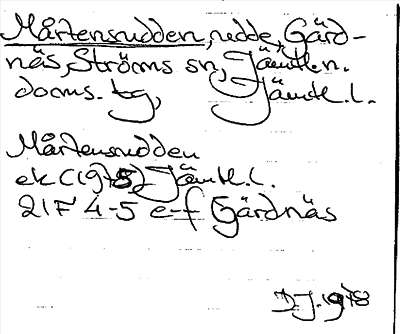 Mårtensudden, udde, Gärd-
näs, Ströms sn, Jämtl.n.
doms. tg, Jämtl. l.
Mårtensudden
ek (1975) Jämtl. l.
21F 4-5 e-f Gärdnäs
D.J. 1978